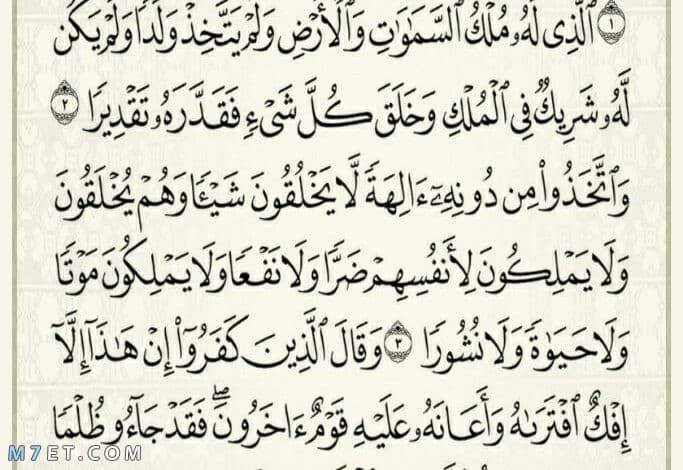 ١ ٱلَّذِى لَهُۥ مُلْكُ ٱلسَّمَـٰوَٰتِ وَٱلْأَرْضِ وَلَمْ يَتَّخِذْ وَلَدًا وَلَمْ يَكُن
لَّهُۥ شَرِيكٌ فِى ٱلْمُلْكِ وَخَلَقَ كُلَّ شَىْءٍ فَقَدَّرَهُۥ تَقْدِيرًا ٢
وَٱتَّخَذُوا۟ مِن دُونِهِۦٓ ءَالِهَةً لَّا يَخْلُقُونَ شَيْـًٔا وَهُمْ يُخْلَقُونَ
وَلَا يَمْلِكُونَ لِأَنفُسِهِمْ ضَرًّا وَلَا نَفْعًا وَلَا يَمْلِكُونَ مَوْتًا
وَلَا حَيَوٰةً وَلَا نُشُورًا ٣ وَقَالَ ٱلَّذِينَ كَفَرُوٓا۟ إِنْ هَـٰذَآ إِلَّآ
إِفْكٌ ٱفْتَرَىٰهُ وَأَعَانَهُۥ عَلَيْهِ قَوْمٌ ءَاخَرُونَ ۖ فَقَدْ جَآءُو ظُلْمًا
M7ET.COM